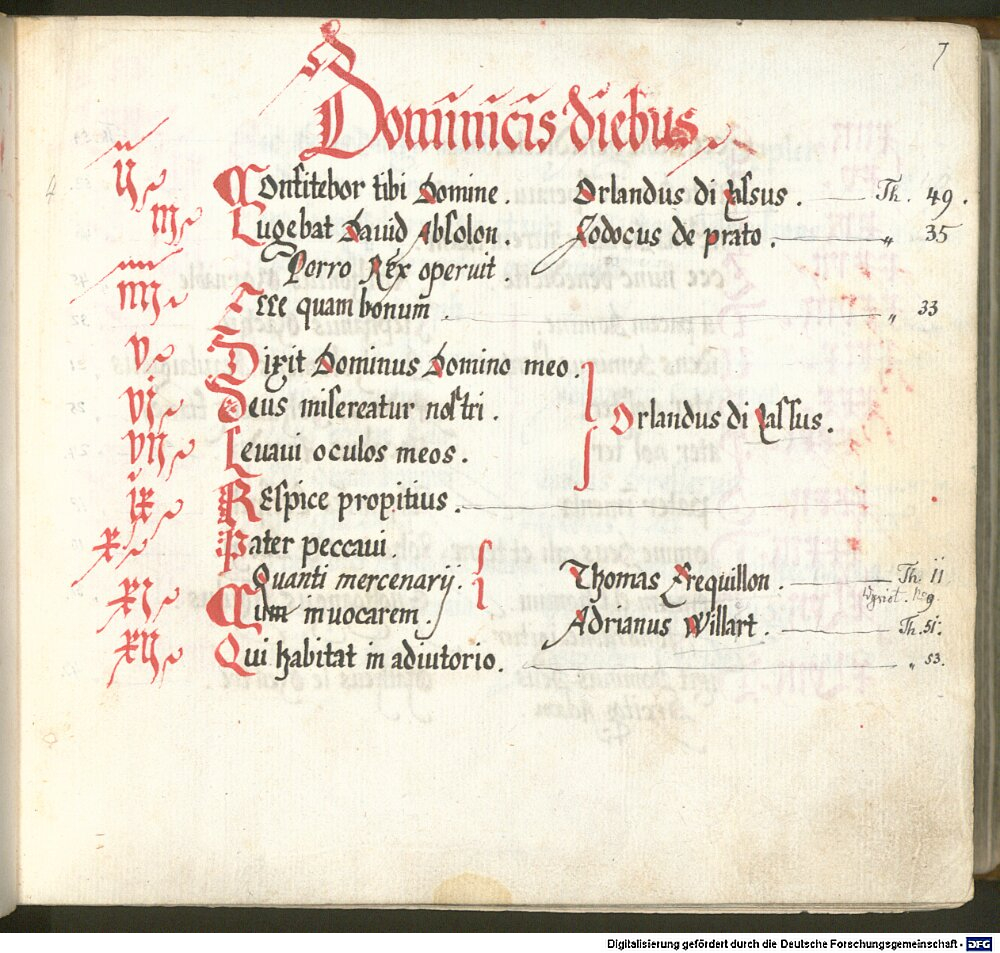 7
Dominicis diebus
4
ij Confitebor tibi Domine. Orlandus di Lassus. Th. 49.
iij Lugebat Dauid Absolon. Jodocus de prato. " 35
Porro Rex operuit.
iiij Ecce quam bonum. " 33
v Dixit Dominus Domino meo.
vi Deus misereatur nostri. Orlandus di Lassus.
vij Leuaui oculos meos.
ix Respice propitius.
x Pater peccaui.
Quanti mercenarij. Thomas Crequillon. Th. 11
No 9.
xi Cum inuocarem. Adrianus Willart. Th. 51.
xij Qui habitat in adiutorio. " 53.
Digitalisierung gefördert durch die Deutsche Forschungsgemeinschaft - DFG